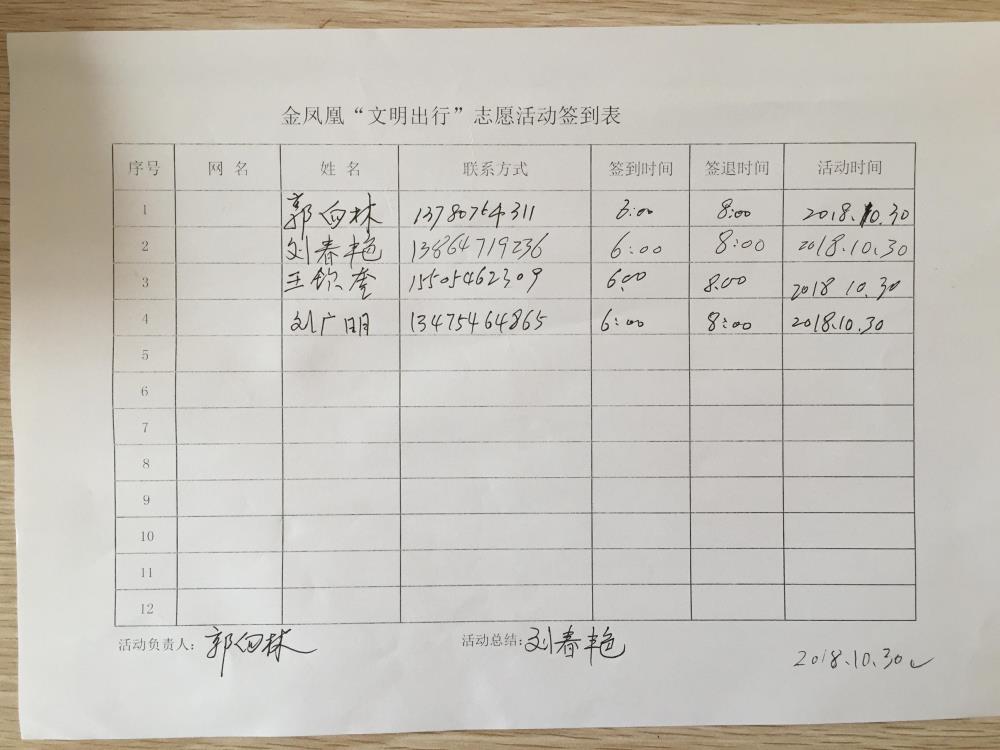 金凤凰“文明出行”志愿活动签到表
序号 网 名 姓 名 联系方式 签到时间 签退时间 活动时间
1 郭向林 13780754311 6:00 8:00 2018.10.30
2 刘春艳 13864719236 6:00 8:00 2018.10.30
3 王钦奎 15505462309 6:00 8:00 2018 10.30
4 刘广明 13475464865 6:00 8:00 2018.10.30
5
6
7
8
9
10
11
12
活动负责人: 郭向林 活动总结: 刘春艳
2018.10.30